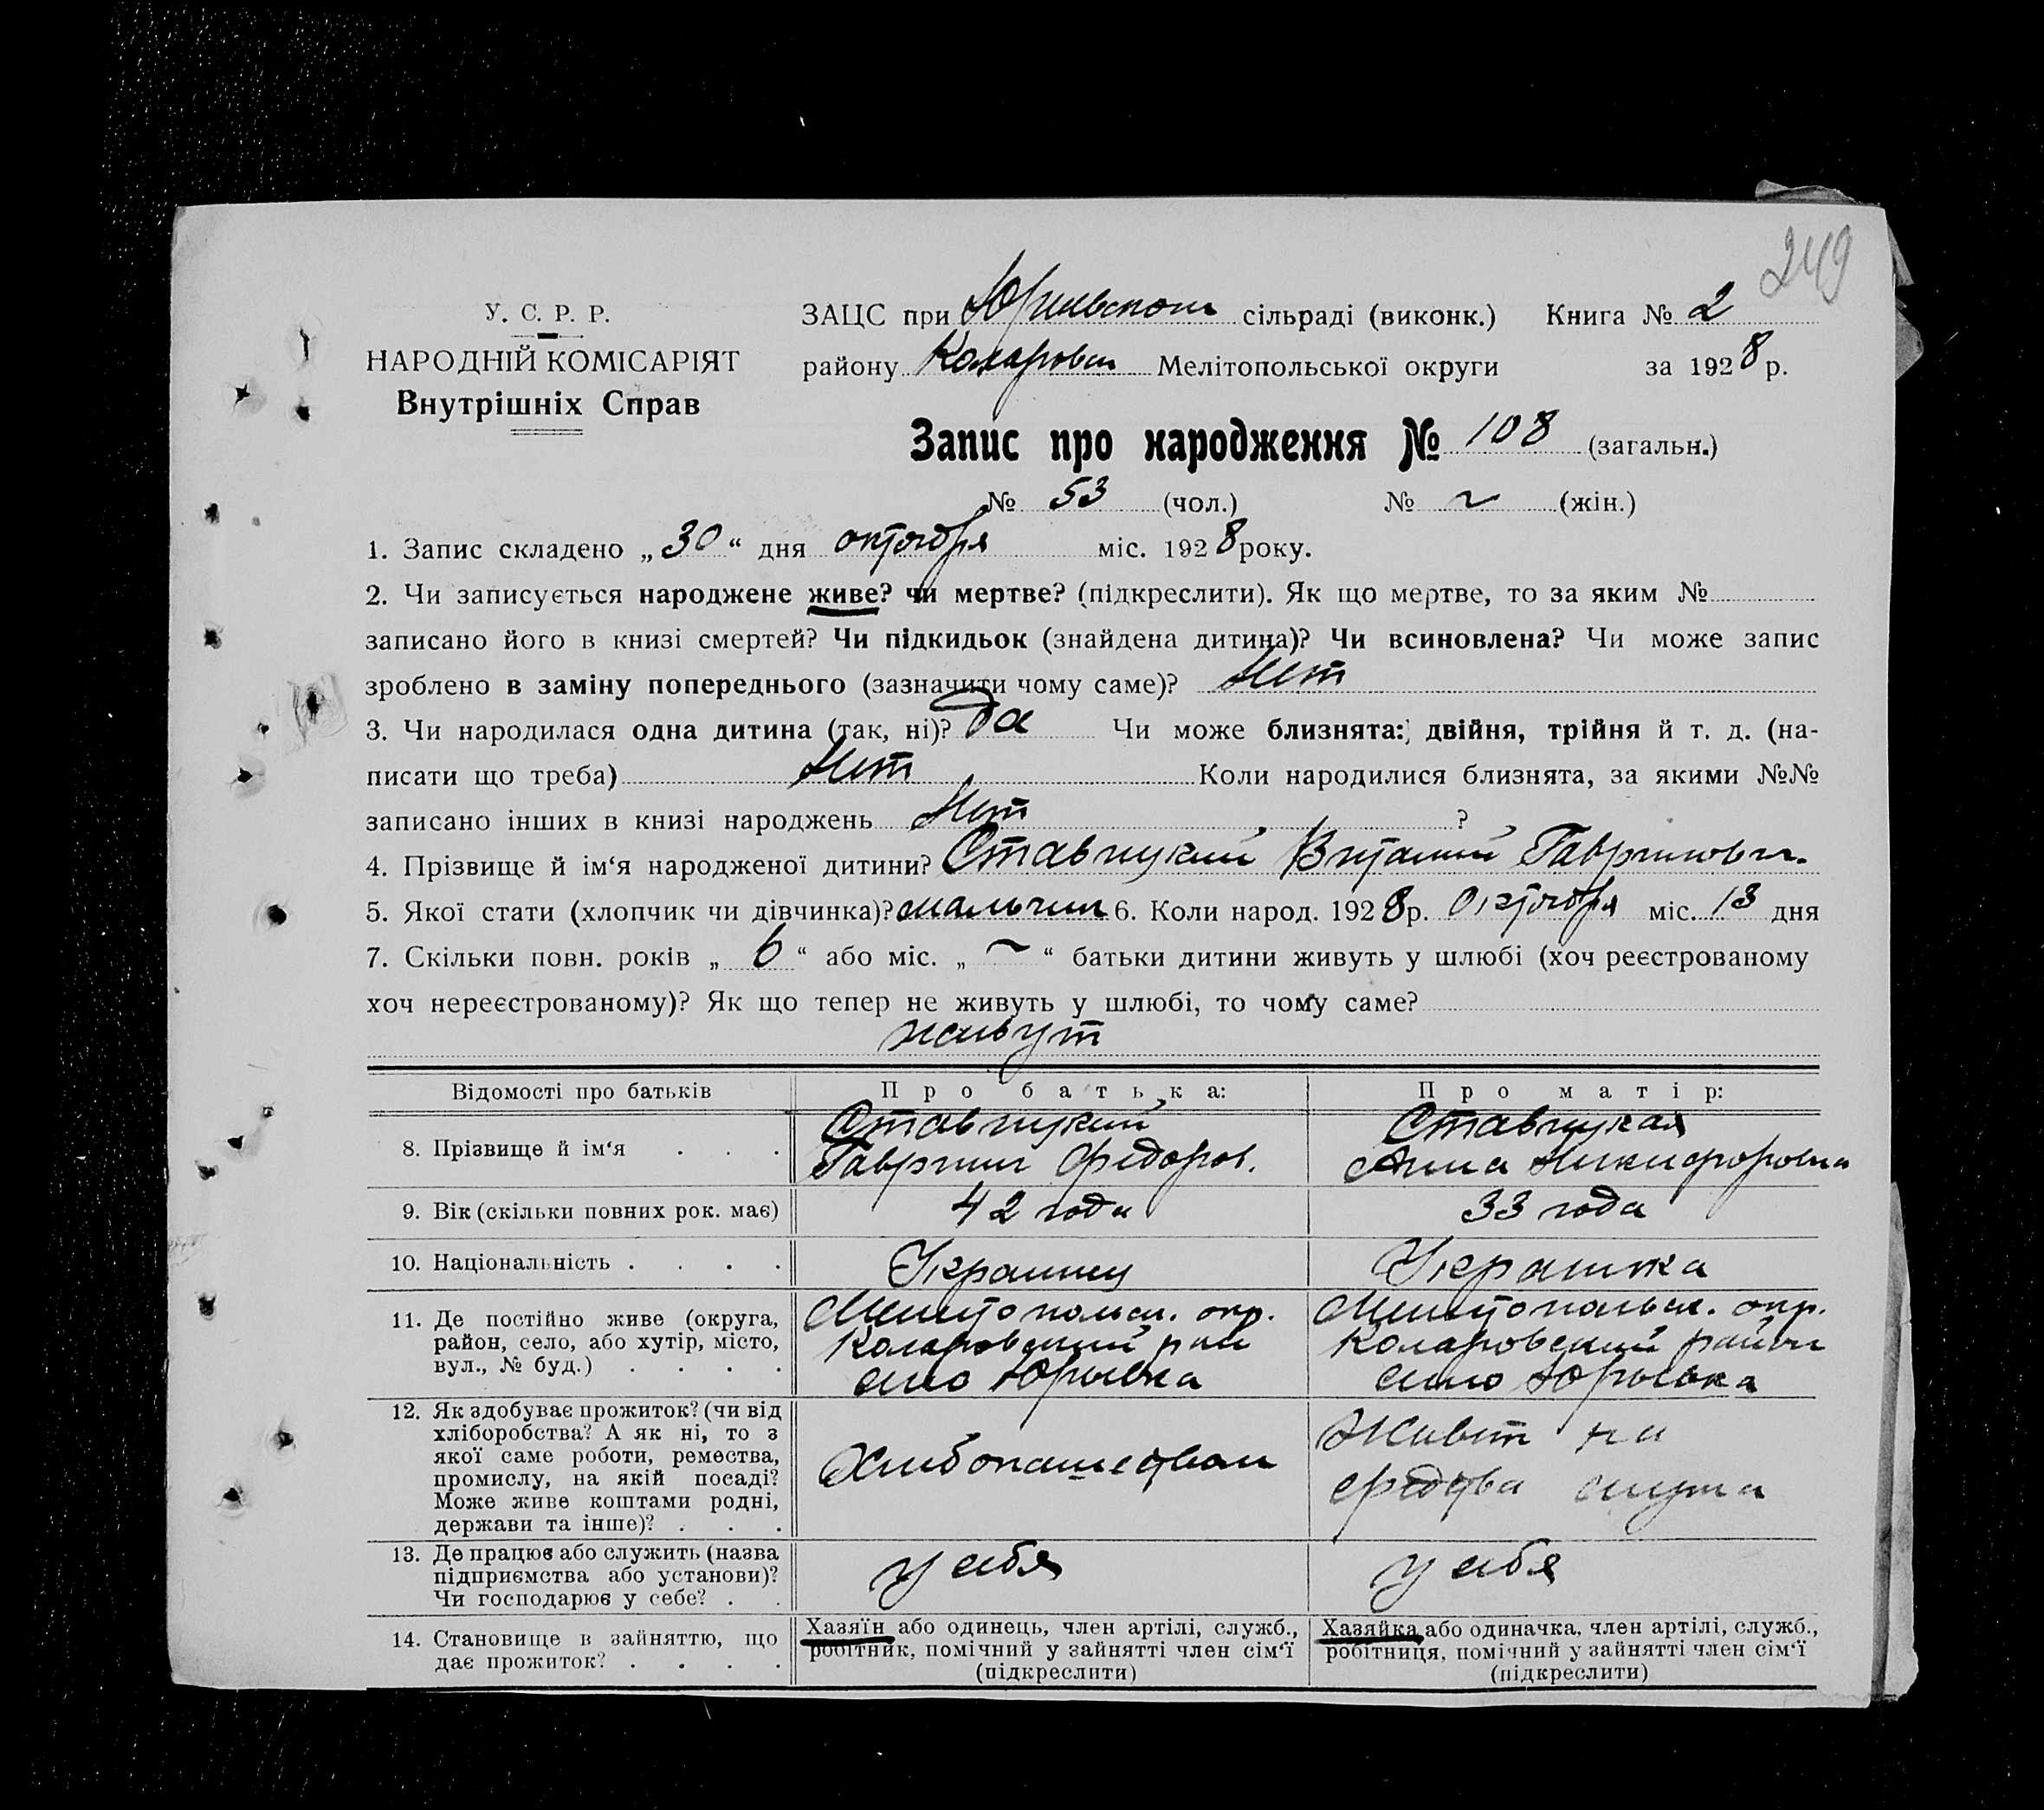 249
У. С. Р. Р.
НАРОДНІЙ КОМІСАРІЯТ
Внутрішніх Справ
ЗАЦС при Юрьевском сільраді (виконк.) Книга № 2
району Коларовск Мелітопольської округи за 1928 р.
Запис про народження № 108 (загальн.)
№ 53 (чол.) № ~ (жін.)
1. Запис складено „30“ дня октября міс. 1928 року.
2. Чи записується народжене живе? чи мертве? (підкреслити). Як що мертве, то за яким №
записано його в книзі смертей? Чи підкидьок (знайдена дитина)? Чи всиновлена? Чи може запис
зроблено в заміну попереднього (зазначити чому саме)? Нет
3. Чи народилася одна дитина (так, ні)? да Чи може близнята: двійня, трійня й т. д. (на-
писати що треба) Нет Коли народилися близнята, за якими №№
записано інших в книзі народжень Нет ?
4. Прізвище й ім‘я народженої дитини? Ставицкий Виталий Гаврилович.
5. Якої стати (хлопчик чи дівчинка)? мальчик 6. Коли народ. 1928 р. Октября міс. 13 дня
7. Скільки повн. років „ 6 “ або міс. „ ~ “ батьки дитини живуть у шлюбі (хоч реєстрованому
хоч нереєстрованому)? Як що тепер не живуть у шлюбі, то чому саме?
живут
Відомості про батьків Про батька: Про матір:
8. Прізвище й ім‘я . . . Ставицкий Гавриил Федоров. Ставицкая Анна Никифоровна
9. Вік (скільки повних рок. має) 42 года 33 года
10. Національність . . . . Украинец Украинка
11. Де постійно живе (округа, Мелитопольск. окр. Мелитопольск. окр.
район, село, або хутір, місто, Коларовский рай Коларовский район
вул., № буд.) . . . . село Юрьевка село Юрьевка
12. Як здобуває прожиток? (чи від
хліборобства? А як ні, то з Живет на
якої саме роботи, ремества, Хлебопашеством
промислу, на якій посаді? средства мужа
Може живе коштами родні,
держави та інше)? . . .
13. Де працює або служить (назва у себя у себя
підприємства або установи)?
Чи господарює у себе? . .
14. Становище в зайняттю, що Хазяїн або одинець, член артілі, служб., Хазяйка або одиначка, член артілі, служб.,
дає прожиток? . . . . робітник, помічний у зайнятті член сім‘ї робітниця, помічний у зайнятті член сім‘ї
(підкреслити) (підкреслити)